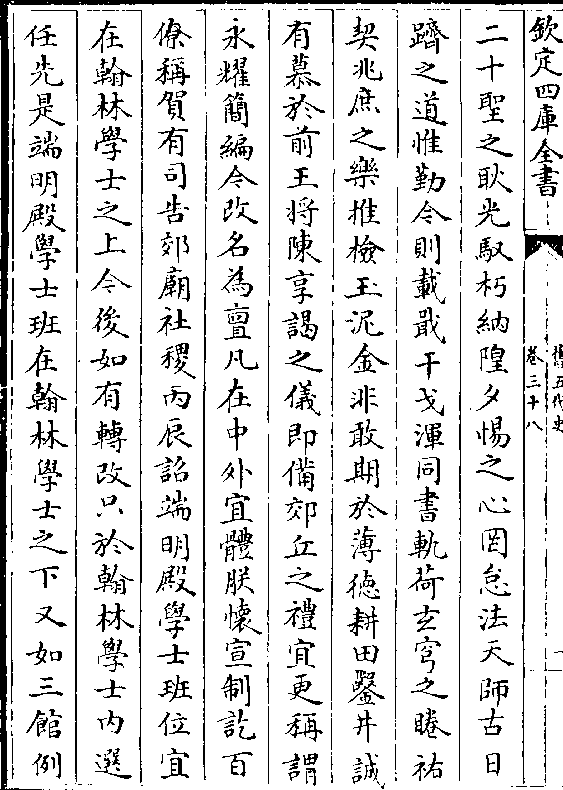 欽定四庫全書
舊五代史
卷三十八
一
二十聖之耿光馭朽納隍夕惕之心罔怠法天師古日
躋之道惟勤今則載戢干戈渾同書軌荷玄穹之睠祐
契兆庶之樂推檢玉泥金非敢期於薄德耕田鑿井誠
有慕於前王將陳享謁之儀即備郊丘之禮宜更稱謂
永耀簡編今改名為亶凡在中外宜體朕懷宣制訖百
僚稱賀有司告郊廟社稷丙辰詔端明殿學士班位宜
在翰林學士之上今後如有轉改只於翰林學士內選
任先是端明殿學士班在翰林學士之下又如三館例